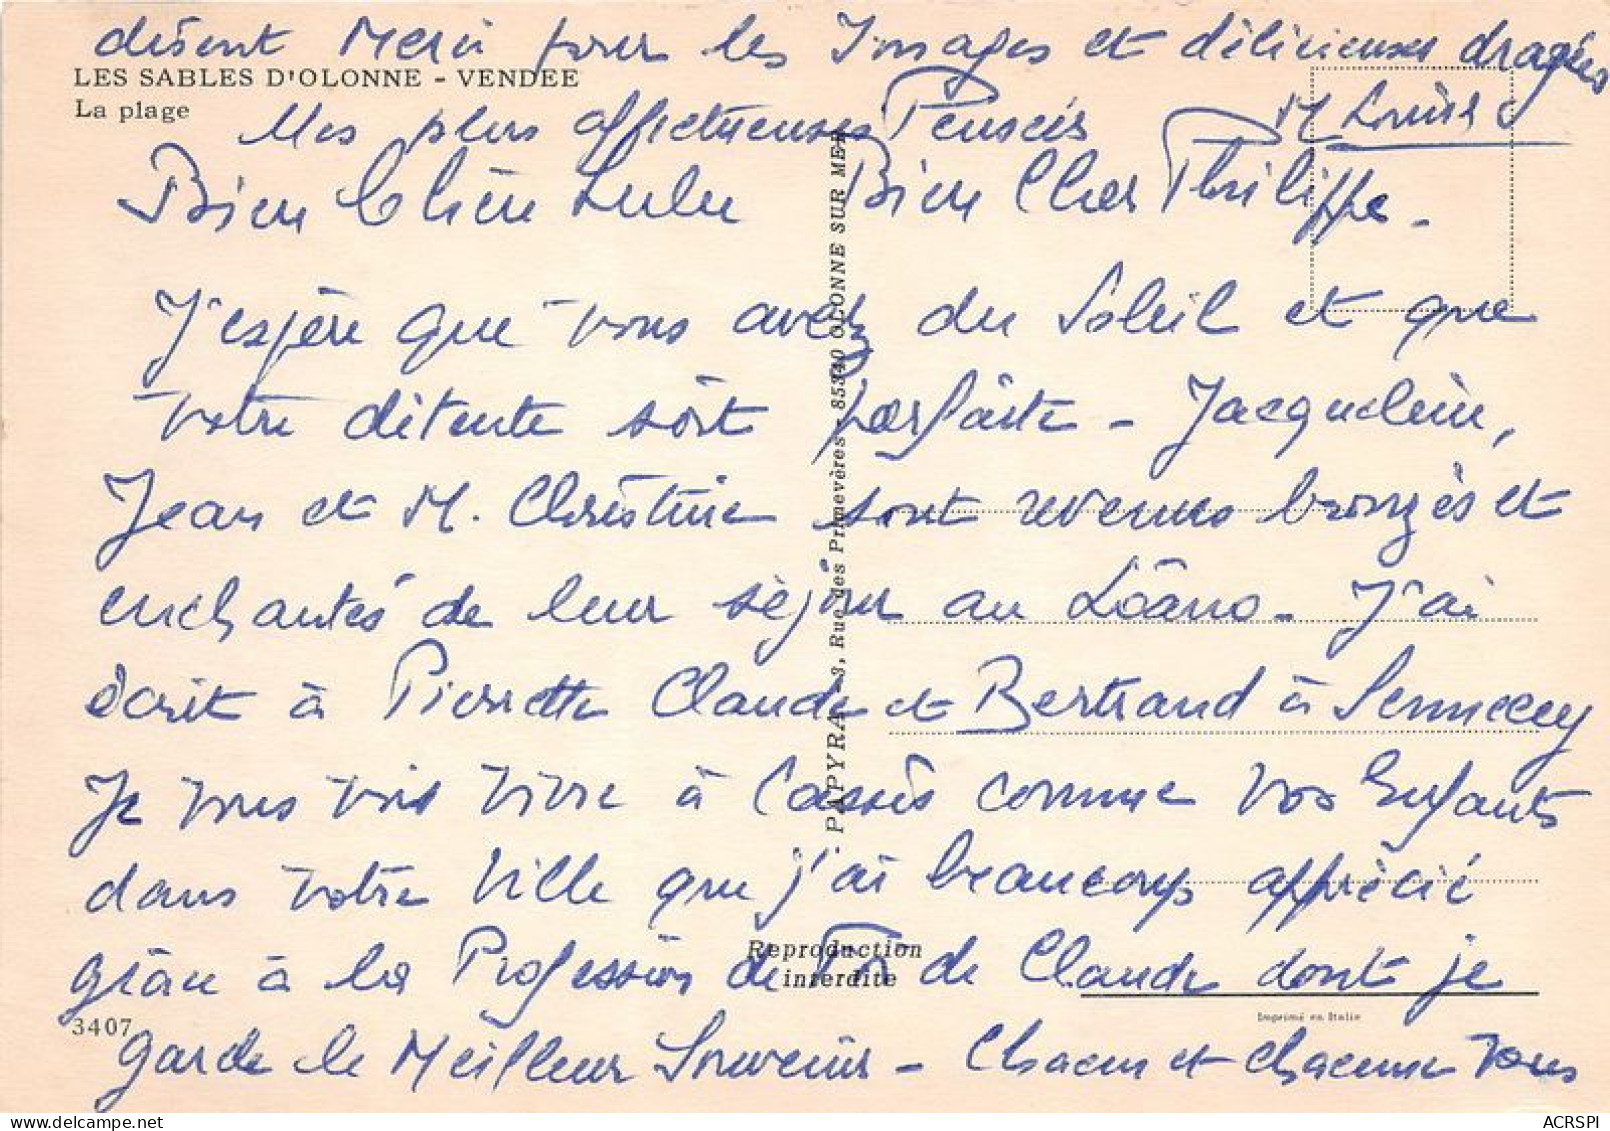 disent Merci pour les Images et délicieuses dragées
LES SABLES D'OLONNE - VENDEE
La plage
Mes plus affectueuses Pensées M Louise
Bien Chère Lulu Bien Cher Philippe.
J'espère que vous avez du Soleil et que
votre détente soit parfaite - Jacqueline,
Jean et M. Christine sont revenus bronzés et
enchantés de leur séjour au Lôano - J'ai
écrit à Pierrette Claude et Bertrand à Sennecey
Je vous vois vivre à Cassis comme vos Enfants
dans votre Ville que j'ai beaucoup apprécié
grâce à la Profession de Foi de Claude dont je
garde le Meilleur Souvenir - Chacun et chacune vous
PAPYRA 3, Rue des Primevères - 85340 OLONNE SUR MER
Reproduction
interdite
3407
Imprimé en Italie
ACRSPI